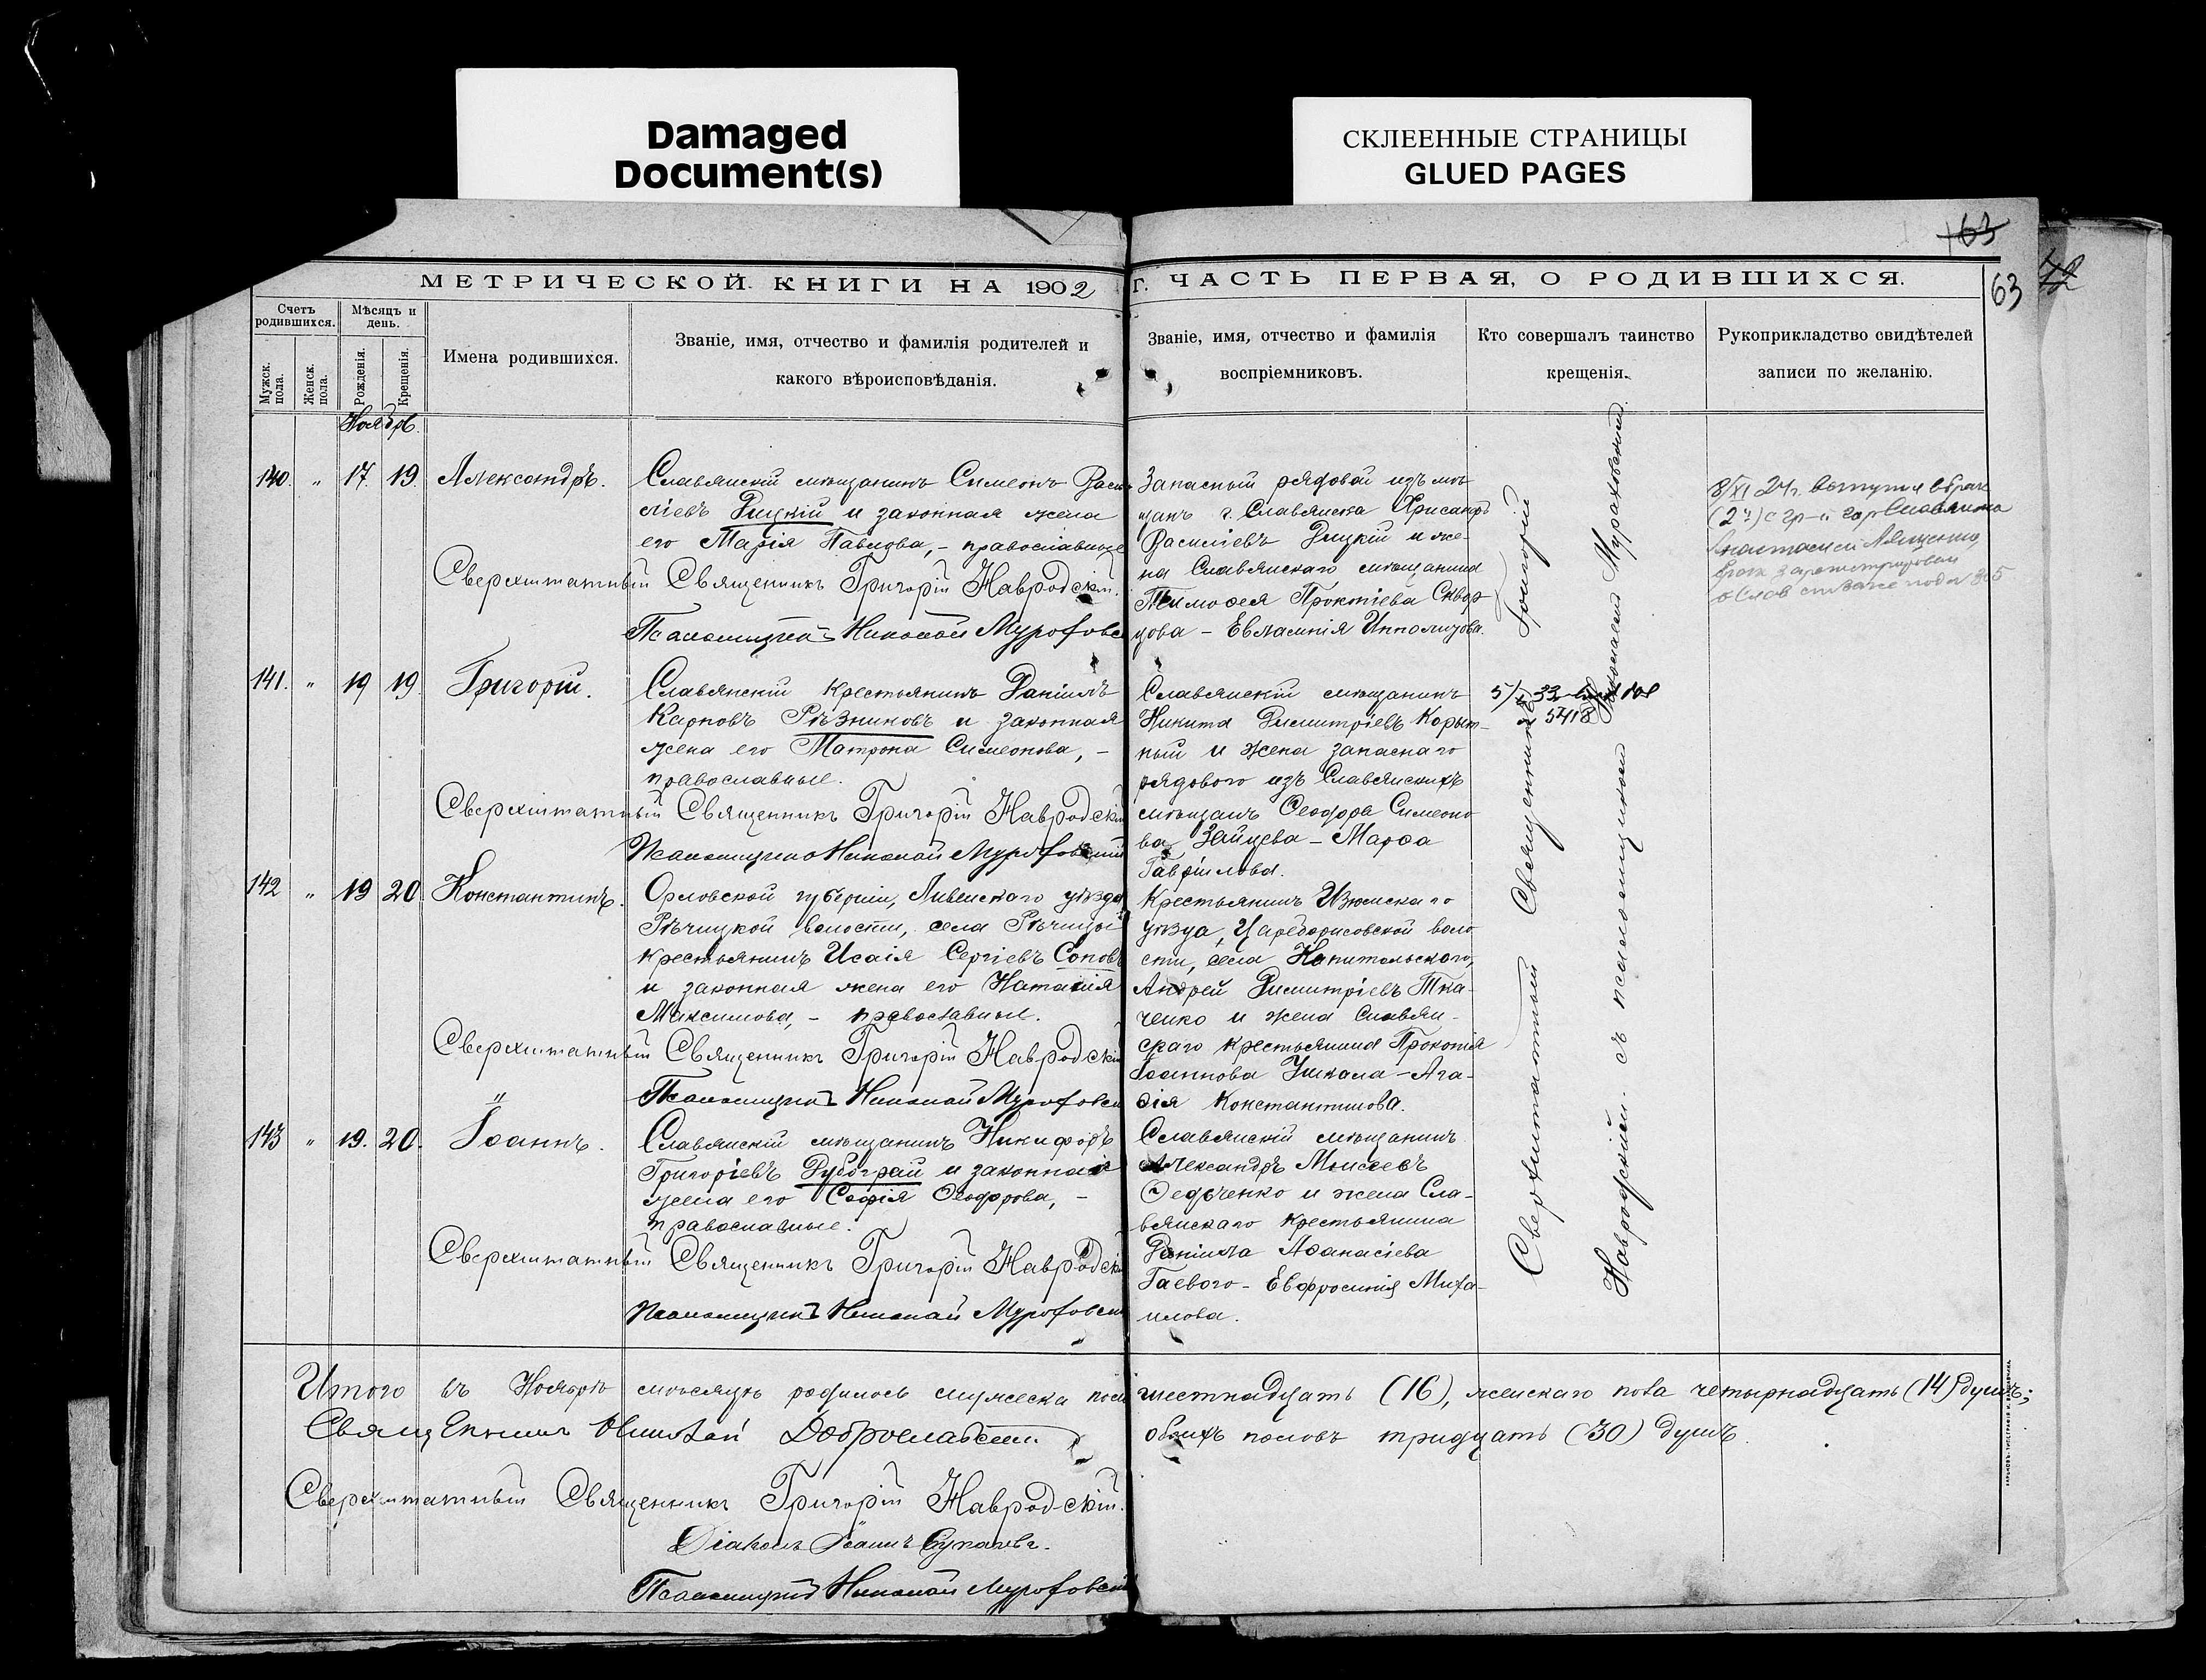 Damaged
Document(s)
СКЛЕЕННЫЕ СТРАНИЦЫ
GLUED PAGES
163
63
МЕТРИЧЕСКОЙ КНИГИ НА 1902
Г. ЧАСТЬ ПЕРВАЯ, О РОДИВШИХСЯ.
Счетъ родившихся.
Мужск. пола.
Женск. пола.
Мѣсяцъ и день.
Рожденія.
Крещенія.
Имена родившихся.
Званіе, имя, отчество и фамилія родителей и
какого вѣроисповѣданія.
Званіе, имя, отчество и фамилія
воспріемниковъ.
Кто совершалъ таинство
крещенія.
Рукоприкладство свидѣтелей
записи по желанію.
Ноябрь.
140. " 17. 19. Александръ.
Славянскій мѣщанинъ Симеонъ Васи
ліевъ Рицкій и законная жена
его Марія Павлова, - православные
Сверхштатный Священникъ Григорій Навродскій.
Псаломщикъ Николай Мураховс
Запасный рядовой изъ мѣ
щанъ г. Славянска Хрисанфъ
Василіевъ Рицкій и же-
на Славянскаго мѣщанина
Тимоѳея Прокпіева Сквор
цова - Евлампія Ипполитова.
8/XI 24 г. вступил в брак
(2й) с гр-й гор Славянска
Анастасией
брак зарегистрирован
141. " 19 19. Григорій.
Славянскій крестьянинъ Даніилъ
Карповъ Рѣзниковъ и законная
жена его Матрона Симеонова, -
православные.
Сверхштатный Священникъ Григорій Навродскій
Псаломщикъ Николай Мураховскій
Славянскій мѣщанинъ
Никита Димитріевъ Корыт-
ный и жена запаснаго
рядового изъ Славянскихъ
мѣщанъ Ѳеодора Симеоно
ва Зайцева - Марѳа
Гавріилова.
5418
142 " 19 20. Константинъ.
Орловской губерніи, Ливенскаго уѣзда
Рѣчицкой волости, села Рѣчицы
крестьянинъ Исаія Сергіевъ Соповъ
и законная жена его Наталія
Максимова, - православные.
Сверхштатный Священникъ Григорій Навродскій
Псаломщикъ Николай Мураховск
Крестьянинъ Изюмскаго
уѣзда, Царебориcовской воло
сти, села Капитольскаго,
Андрей Димитріевъ Тка-
ченко и жена Славян-
скаго крестьянина Прокопія
Іоаннова Ушкала - Ага-
ѳія Константинова.
143 " 19. 20. Іоаннъ.
Славянскій мѣщанинъ Никифоръ
Григоріевъ Дубограй и законная
жена его Софія Ѳеодорова, -
православные.
Сверхштатный Священникъ Григорій Навродскі
Псаломщикъ Николай Мураховск
Славянскій мѣщанинъ
Александръ Моисеевъ
Федченко и жена Сла-
вянскаго крестьянина
Даніила Аѳанасіева
Гаевого - Евфросинія Миха-
илова.
Сверхштатный Священникъ Григорій
Навродскій съ псаломщикомъ Николаемъ Мураховскимъ
Итого въ Ноябрѣ мѣсяцѣ родилось мужеска пола шестнадцать (16), женскаго пола четырнадцать (14) душъ;
обоихъ половъ тридцать (30) душъ.
Священникъ Николай Доброславскій
Сверхштатный Священникъ Григорій Навродскій.
Діаконъ Іоаннъ
Псаломщикъ Николай Мураховскій